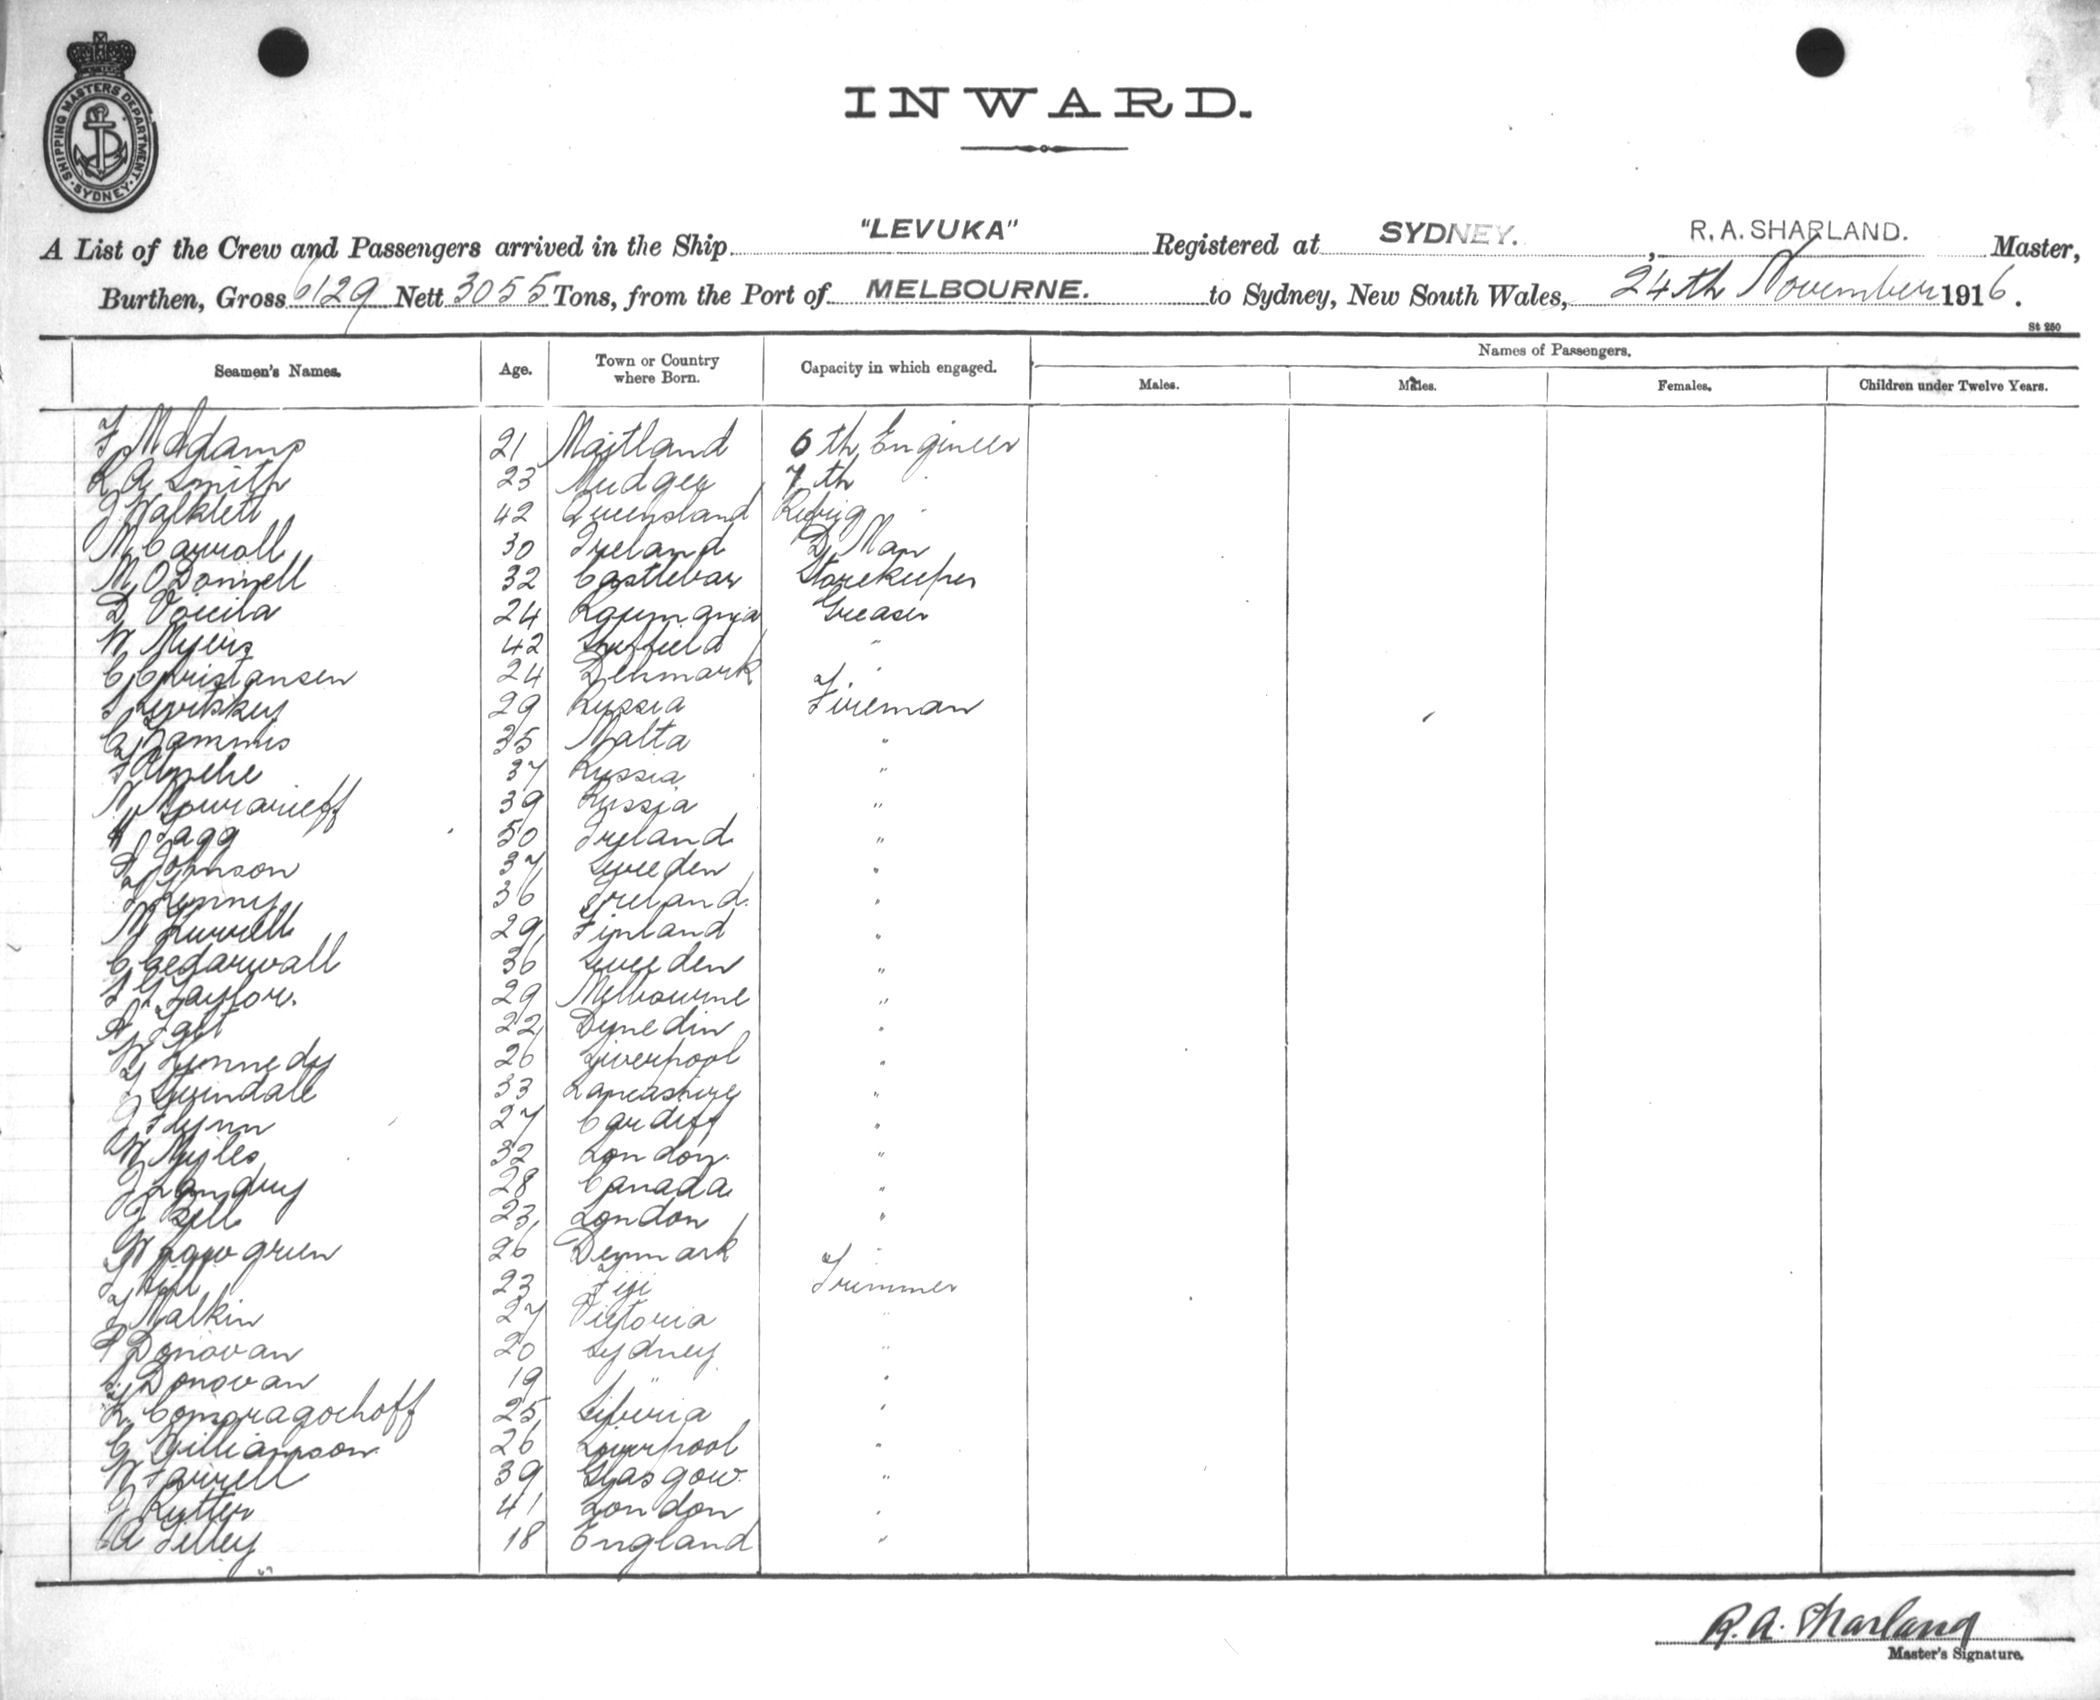 SHIPPING MASTERS DEPARTMENT. SYDNEY.
INWARD.
A List of the Crew and Passengers arrived in the Ship "LEVUKA" Registered at SYDNEY. , R. A. SHARLAND. Master,
Burthen, Gross 6129 Nett 3055 Tons, from the Port of MELBOURNE. to Sydney, New South Wales, 24th November 1916.
St 250
Seamen's Names. Age. Town or Country where Born. Capacity in which engaged. Names of Passengers.
Males. Males. Females. Children under Twelve Years.
F McAdams 21 Maitland 6th Engineer
R A Smith 23 Mudgee 7th "
J Walklett 42 Queensland Refrig "
M Carroll 30 Ireland D Man
M O'Donnell 32 Castlebar Storekeeper
D Voicila 24 Roumania Greaser
W Myers 42 Sheffield "
C Christansen 24 Denmark "
29 Russia Fireman
C Zammis 35 Malta "
37 Russia "
N Mowrarieff 39 Russia "
50 Ireland "
Johnson 37 Sweeden "
Kenny 36 Ireland "
M 29 Finland "
C Cedarwall 36 Sweeden "
Taylor. 29 Melbourne "
A Tait 22 Dunedin "
W Kennedy 26 Liverpool "
33 Lancashire "
J Flynn 27 Cardiff "
W Myles 32 London "
J Landry 28 Canada "
Bell 23 London "
26 Denmark "
23 Fiji Trimmer
J Malkin 27 Victoria "
P Donovan 20 Sydney "
J Donovan 19 " "
K Comoragochoff 25 Siberia "
C Williamson 26 Liverpool "
W Farrell 39 Glasgow "
J Rutter 41 London "
A Tilley 18 England "
R. A. Sharland
Master's Signature.